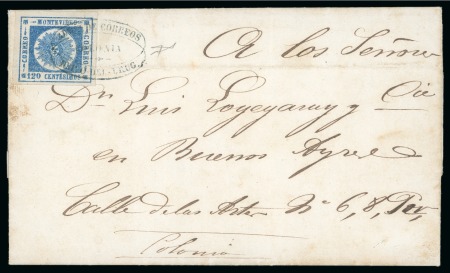 MONTEVIDEO
CORREO
CORREO
120 CENTESIMOS
DE CORREOS
A los Señores
Dn Luis Loyegaray y Cia
en Buenos Ayres
Calle de las Artes No 6, 8,
Colonia